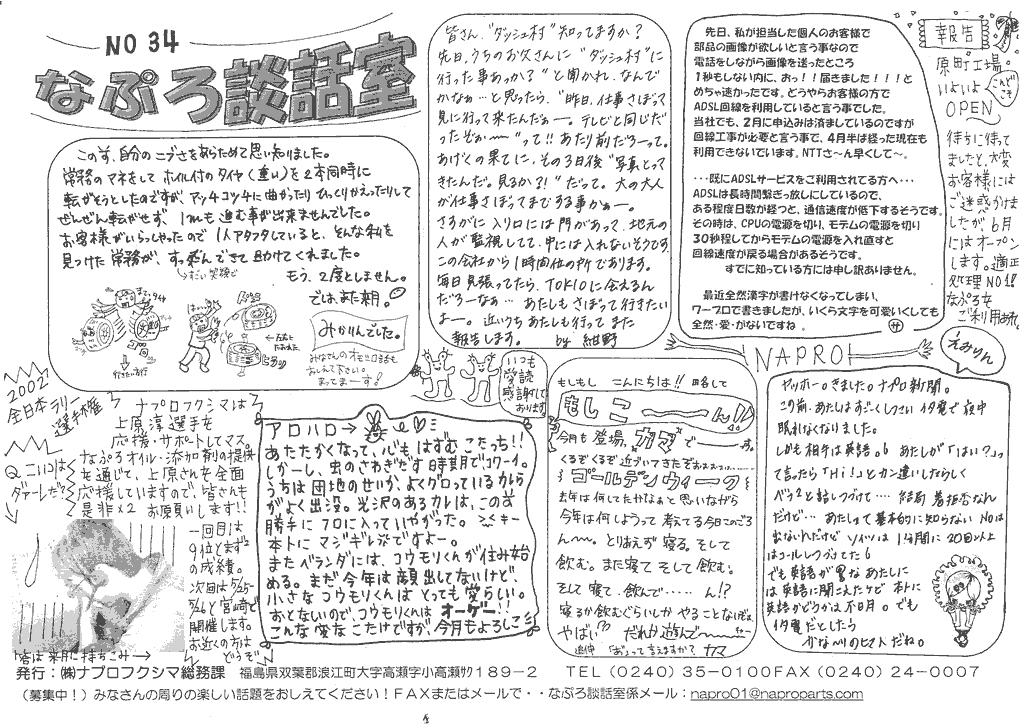 NO 34
なぷろ談話室
この前、自分のニブさをあらためて思い知りました。
常務のマネをして ホイル付のタイヤ(重い)を2本同時に
転がそうとしたのですが、アッチコッチに曲がったり ひっくりかえったりして
ぜんぜん転がせず、1mも進む事が出来ませんでした。
お客様がいらっしゃったので 1人アタフタしていると、そんな私を
見つけた常務が、すっ飛んできて助けてくれました。
もう、2度としません。
では、また来月。
みかりんでした。
皆さん、“ダッシュ村”知ってますか?
先日、うちのお父さんに“ダッシュ村”に
行った事あっか?”と聞かれ、なんで
かなぁ…と思ったら、“昨日、仕事さぼって
見に行って来たんだぁー。テレビと同じだ
ったぞぉ〜”って!! あたり前だろーって。
あげくの果てに、その3日後“写真とって
きたんだ。見るか?!”だって。大の大人
が仕事さぼってまでする事かぁー。
さすがに入り口には門があって、地元の
人が監視してて、中には入れないそうです。
この会社から1時間位の所であります。
毎日見張ってたら、TOKIOに会えるん
だろーなぁ… あたしもさぼって行きたい
よー。 近いうちあたしも行って また
報告します。 by 紺野
先日、私が担当した個人のお客様で
部品の画像が欲しいと言う事なので
電話をしながら画像を送ったところ
1秒もしない内に、おっ!!届きました!!!!と
めちゃ速かったです。どうやらお客様の方で
ADSL回線を利用していると言う事でした。
当社でも、2月に申込みは済ましているのですが
回線工事が必要と言う事で、4月半ば経った現在も
利用できないでいます。NTTさ〜ん早くして〜。
・・・既にADSLサービスをご利用されてる方へ・・・
ADSLは長時間繋ぎっ放しにしているので、
ある程度日数が経つと、通信速度が低下するそうです。
その時は、CPUの電源を切り、モデムの電源を切り
30秒程してからモデムの電源を入れ直すと
回線速度が戻る場合があるそうです。
すでに知っている方には申し訳ありません。
最近全然漢字が書けなくなってしまい、
ワープロで書きましたが、いくら文字を可愛いくしても
全然・愛・がないですね。 サ
報告
原町工場。
いよいよ
こんどこそ
OPEN
待ちに待って
ました。大変
お客様には
ご迷惑かけ
ましたが、6月
にはオープン
します。適正
処理NO1!!
なぷろを
ご利用あれ
2002
全日本ラリー
選手権
ナプロフクシマは
上原淳選手を
応援・サポートしてマス。
なぷろオイル・添加剤の提供
を通じて、上原さんを全面
応援していますので、皆さんも
是非×2 お願いします!!
Q.こいつは
ダァーレだ?
一回目は
9位とまずまず
の成績。
次回は5/25-
5/26と宮崎で
開催します。
お近くの方は
どうぞ
答は来月に持ちこみ→
いつも
愛読
感謝して
おります
アロハロ→
あたたかくなって、心も、はずむ こたっち!!
しかーし、虫のさわぎだす時期でコワーイ。
うちは団地のせいか、よくグロっているカレら
がよく出没。光沢のあるカレは、この前
勝手にフロに入っていやがった。
本トにマジギレ系ですよー。
またベランダには、コウモリくんが住み始
める。まだ今年は顔出してないけど、
小さなコウモリくんはとっても愛らしい。
おとなしいので、コウモリくんはオーケー!!
こんな変なこたけですが、今月もよろしこ
もしもし こんにちは!! 略して
もしこ――ん!!
今月も登場、カマでーす。
ゴールデンウィーク
去年は何してたかなぁと思いながら
今年は何しようって考えてる今日このごろ
ん〜〜。とりあえず寝る。そして
飲む。また寝て そして飲む。
そして寝て・飲んで…… ん!?
寝るか飲むぐらいしか やることなければ、
やばい?? だれか遊んで〜〜
NAPRO
えみりん
ヤッホー。きました。ナプロ新聞。
この前、あたしはすごーくしつこいイタ電で夜中
眠れなくなりました。
しかも相手は英語。。あたしが「はい?」っ
て言ったら「Hi!」とカン違いしたらしく
ペラペラと話しつづけて… 結局着拒否なん
だけど… あたしって基本的に知らないNoは
出ないんだけど ソイツは1時間に20回以上
はコールしつづけてた。
でも英語が異なあたしに
は英語に聞こえたけど 本トに
英語かどうかは不明。でも
イタ電だとしたら
かな〜りのヒマ人だね。
発行:㈱ナプロフクシマ総務課 福島県双葉郡浪江町大字高瀬字小高瀬ｻｸ189-2 TEL(0240)35-0100FAX(0240)24-0007
(募集中!)みなさんの周りの楽しい話題をおしえてください!FAXまたはメールで・・なぷろ談話室係メール:napro01@naproparts.com